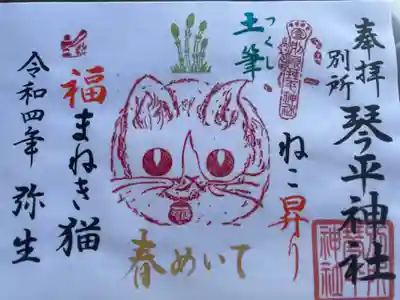 奉拝
別所
琴平神社
ねこ昇り
土筆
つくし
春めいて
福まねき猫
令和四年 弥生